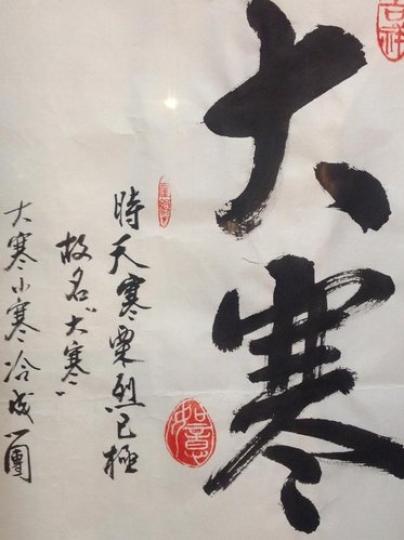 吉祥
大寒
時天寒栗烈已極
故名"大寒"
大寒小寒冷成一團
如意